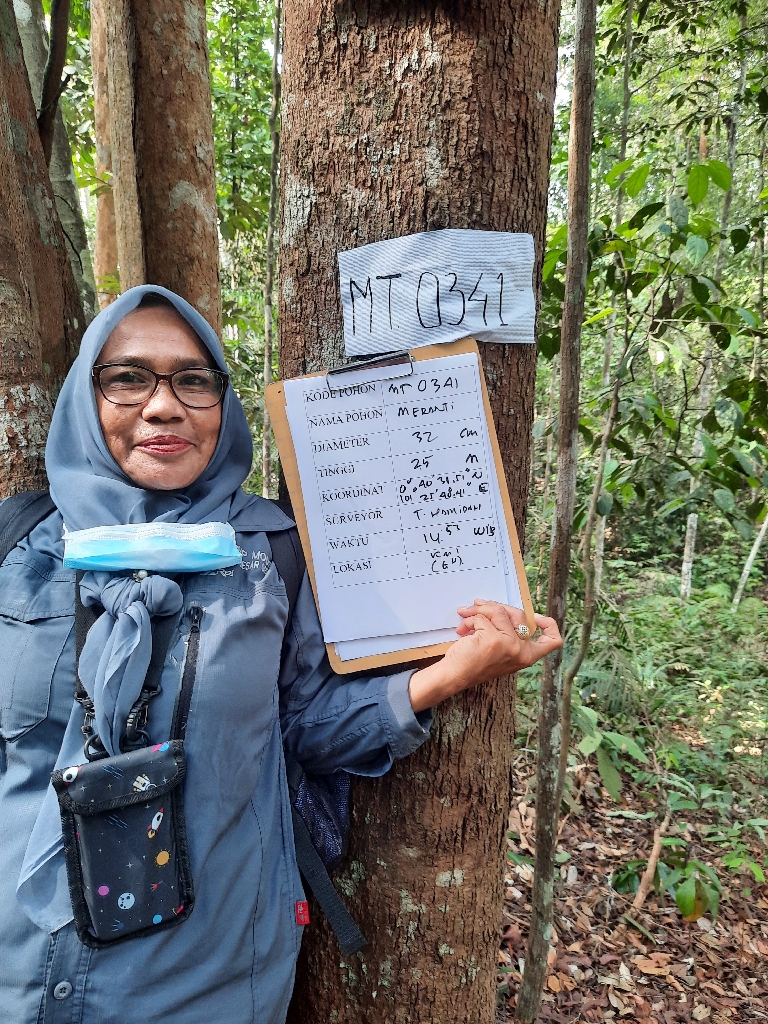 MT. 0341
KODE POHON MT 0341
NAMA POHON MERANTI
DIAMETER 32 cm
TINGGI 25 M
KOORDINAT 0° 40' 31.51" N
101° 21' 48.41" E
SURVEYOR T. HAMIDAH
WAKTU 14.57 WIB
LOKASI